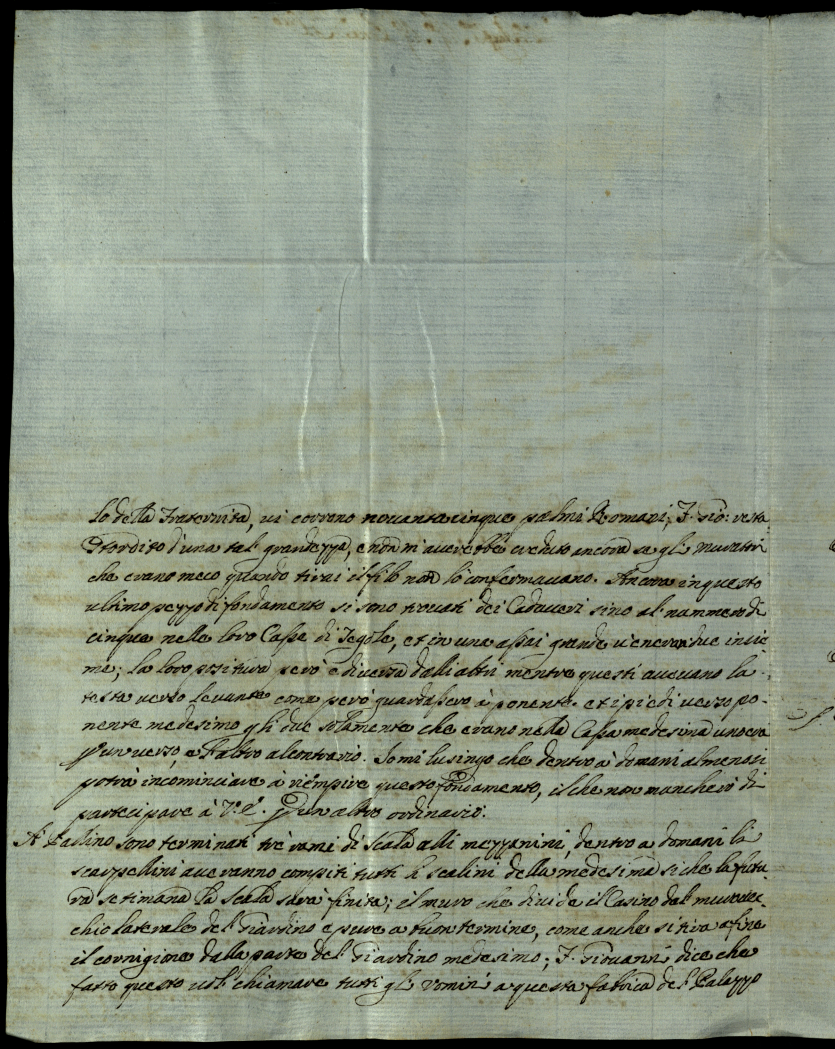 lo della Fraternità, vi corrono novanta cinque palmi Romani; F. Gio: resta
stordito d'una tal grandezza, e non mi averebbe creduto ancora se gli muratori
che erano meco quando tirai il filo non lo confermavano. Ancora in questo
ultimo pezzo di fondamento si sono trovati dei Cadaveri sino al nummero di
cinque nelle loro Casse di Tegole, et in una assai grande v'enerano due insie
me; la loro positura però è diversa dalli altri mentre questi avevano la
testa verso levante come però guardassero à ponente. et i piedi verso po-
nente medesimo gli due solamente che erano nella Cassa medesima uno era
p un verso, e l'altro al contrario. Io mi lusingo che dentro à domani almeno si
potrà incominciare à riempire questo fondamento, il che non mancherò di
partecipare à V. E. p un altro ordinario.
A Paolino sono terminati trè rami di Scala alli mezzanini, dentro a domani li
scarpellini averanno compiti tutti li scalini della medesima si che la futu
ra settimana la scala sarà finita; il muro che divide il Casino dal
chio laterale del Giardino è pure a buon termine, come anche si tira a fine
il cornigione dalla parte del Giardino medesimo; F. Giovanni dice che
fatto questo vol chiamare tutti gli Vomini a questa fabrica del Palazzo